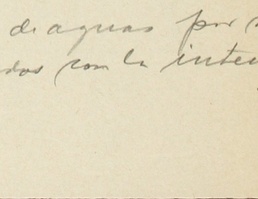 de aguas por
dos con la inten